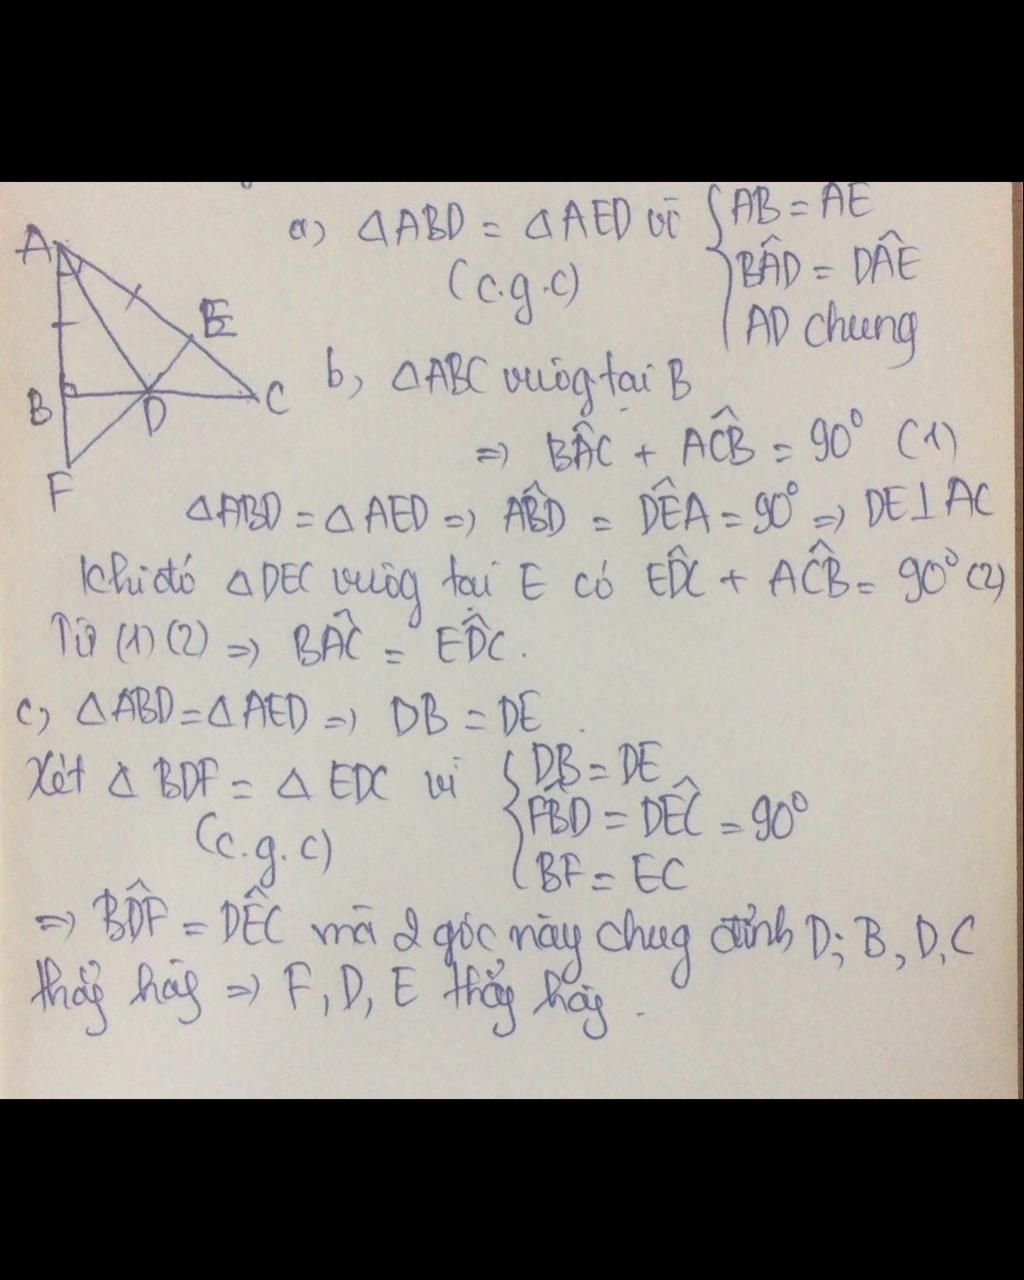 a) ΔABD = ΔAED vì { AB = AE
(c.g.c) BÂD = DÂE
AD chung
A
E
B
D
C
F
b, ΔABC vuôg tại B
=> BÂC + AĈB = 90° (1)
ΔABD = ΔAED => AB̂D = DÊA = 90° => DE⊥AC
Khi đó ΔDEC vuôg tại E có ED̂C + AĈB = 90° (2)
Từ (1) (2) => BÂC = ED̂C.
c, ΔABD = ΔAED => DB = DE.
Xét ΔBDF = ΔEDC vì { DB = DE
(c.g.c) FB̂D = DÊC = 90°
BF = EC
=> BD̂F = DÊC mà 2 góc này chug đỉnh D; B, D, C
thẳg hàg => F, D, E thẳg hàg.